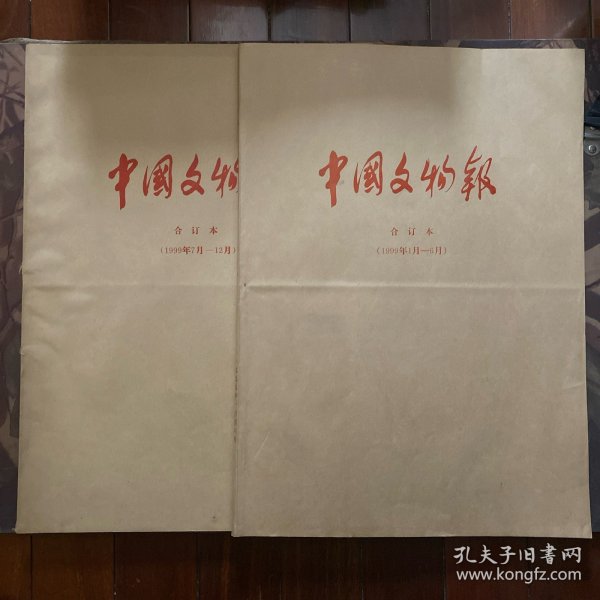 中國文物
合订本
(1999年7月—12月)
中國文物報
合订本
(1999年1月—6月)
孔夫子旧书网
www.kongfz.com